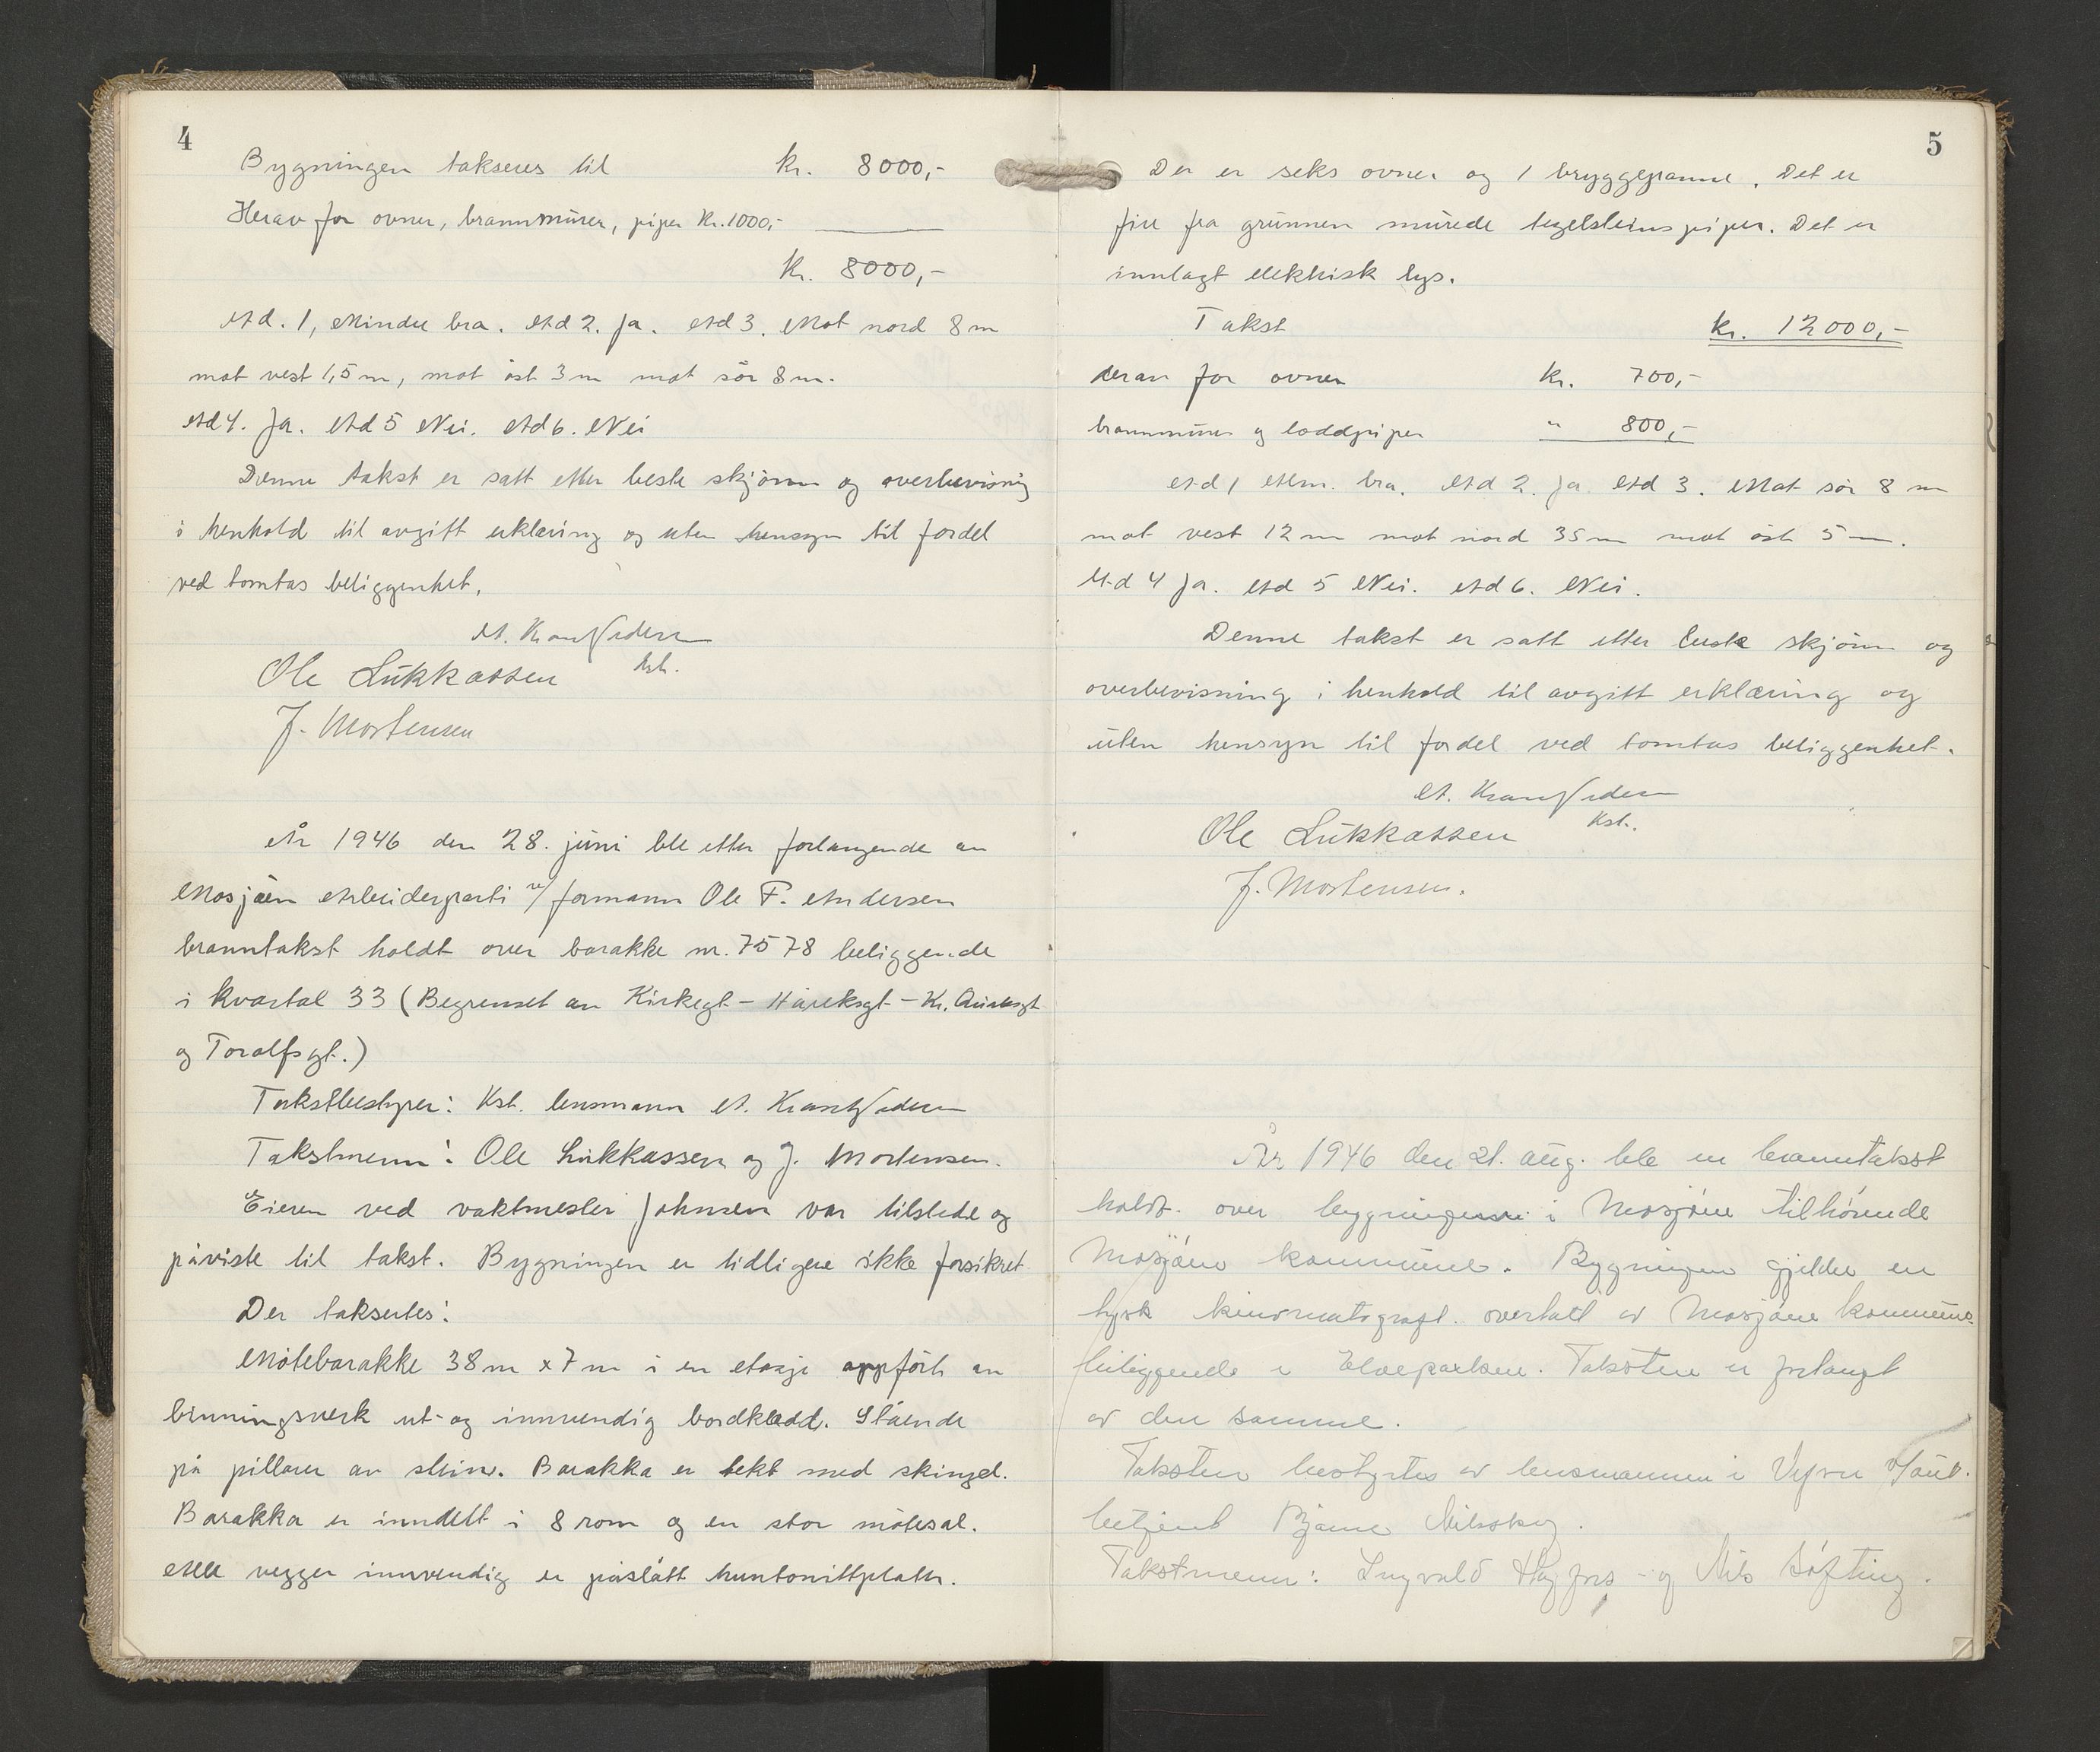 4
Bygningen takseres til kr. 8000,-
Herav for ovner, brannmurer, piper kr. 1000,-
kr. 8000,-
Ad. 1, Mindre bra. Ad 2. Ja. Ad 3. Mot nord 8 m
mot vest 1,5 m, mot öst 3 m mot sör 8 m.
Ad 4. Ja. Ad 5 Nei. Ad 6. Nei
Denne takst er satt etter beste skjönn og overbevisning
i henhold til avgitt erklæring og uten hensyn til fordel
ved tomtas beliggenhet.
A.
Ole Lukkassen kst.
J. Mortensen
År 1946 den 28. juni ble etter forlangende av
Mosjöen Arbeiderparti v/ formann Ole F. Andersen
branntakst holdt over barakke nr. 7578 beliggende
i kvartal 33 (Begrenset av Kirkegt - Håreksgt -
og Toralfsgt.)
Takstbestyrer: Kst. lensmann A.
Takstmenn: Ole Lukkassen og J. Mortensen.
Eieren ved vaktmester Johnsen var tilstede og
påviste til takst. Bygningen er tidligere ikke forsikret
Der taksertes:
Mötebarakke 38 m x 7 m i en etasje oppfört av
binningsverk ut- og innvendig bordkledd. Stående
på pillarer av stein. Barakka er tekt med skingel.
Barakka er inndelt i 8 rom og en stor mötesal.
Alle vegger innvendig er påslått huntonittplater.
5
Der er seks ovner og 1 bryggepanne. Det er
fire fra grunnen murede teglsteinspiper. Det er
innlagt elektrisk lys.
Takst kr. 12000,-
derav for ovner kr. 700,-
brannmurer og loddpiper " 800,-
Ad 1 Alm. bra. Ad 2. Ja. Ad 3. Mot sör 8 m
mot vest 12 m mot nord 35 m mot öst 5 m.
Ad 4 Ja. Ad 5 Nei. Ad 6. Nei.
Denne takst er satt etter beste skjönn og
overbevisning i henhold til avgitt erklæring og
uten hensyn til fordel ved tomtas beliggenhet.
A.
Ole Lukkassen Kst.
J. Mortensen.
År 1946 den 21. aug. ble en branntakst
holdt over bygningen i Mosjöen tilhörende
Mosjöen kommune. Bygningen gjelder en
tysk kinomatograf. overtatt av Mosjöen kommune
beliggende i Elveparken. Taksten er forlangt
av den samme.
Taksten bestyrtes av lensmannen i Vefsn v/aut.
betjent Bjarne
Takstmenn: Ingvald og Nils Söfting.